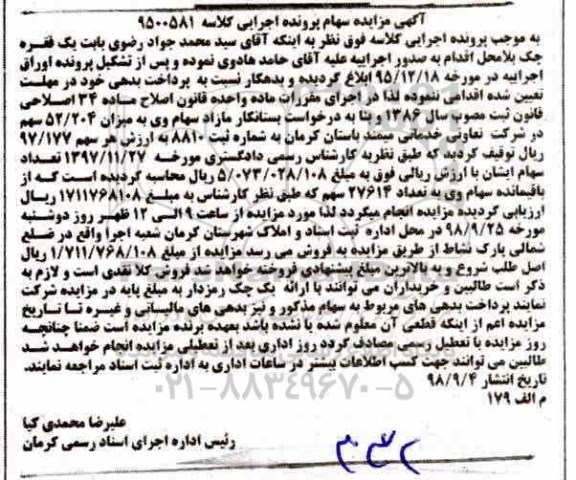 آگهی مزایده سهام پرونده اجرایی کلاسه ۹۵۰۰۵۸۱
به موجب پرونده اجرایی کلاسه فوق نظر به اینکه آقای سید محمد جواد رضوی بابت یک فقره
چک بلامحل اقدام به صدور اجراییه علیه آقای حامد هادوی نموده و پس از تشکیل پرونده اوراق
اجراییه در مورخه ۹۵/۱۲/۱۸ ابلاغ گردیده و بدهکار نسبت به پرداخت بدهی خود در مهلت
تعیین شده اقدامی ننموده لذا در اجرای مقررات ماده واحده قانون اصلاح ماده ۳۴ اصلاحی
قانون ثبت مصوب سال ۱۳۸۶ و بنا به درخواست بستانکار مازاد سهام وی به میزان ۵۲/۲۰۴ سهم
در شرکت تعاونی خدماتی میمند باستان کرمان به شماره ثبت ۸۸۱۰ به ارزش هر سهم ۹۷/۱۷۷
ریال توقیف گردید که طبق نظریه کارشناس رسمی دادگستری مورخه ۱۳۹۷/۱۱/۲۷ تعداد
سهام ایشان با ارزش ریالی فوق به مبلغ ۵/۰۷۳/۰۲۸/۱۰۸ ریال محاسبه گردیده است که از
باقیمانده سهام وی به تعداد ۲۷۶۱۴ سهم که طبق نظر کارشناس به مبلغ ۱۷۱۱۷۶۸۱۰۸ ریال
ارزیابی گردیده مزایده انجام میگردد لذا مورد مزایده از ساعت ۹ الی ۱۲ ظهر روز دوشنبه
مورخه ۹۸/۹/۲۵ در محل اداره ثبت اسناد و املاک شهرستان کرمان شعبه اجرا واقع در ضلع
شمالی پارک نشاط از طریق مزایده به فروش می رسد مزایده از مبلغ ۱/۷۱۱/۷۶۸/۱۰۸ ریال
اصل طلب شروع و به بالاترین مبلغ پیشنهادی فروخته خواهد شد فروش کلا نقدی است و لازم به
ذکر است طالبین و خریداران می توانند با ارائه یک چک رمزدار به مبلغ پایه در مزایده شرکت
نمایند پرداخت بدهی های مربوط به سهام مذکور و نیز بدهی های مالیاتی و غیره تا تاریخ
مزایده اعم از اینکه قطعی آن معلوم شده یا نشده باشد بعهده برنده مزایده است ضمنا چنانچه
روز مزایده با تعطیل رسمی مصادف گردد روز اداری بعد از تعطیلی مزایده انجام خواهد شد
طالبین می توانند جهت کسب اطلاعات بیشتر در ساعات اداری به اداره ثبت اسناد مراجعه نمایند.
تاریخ انتشار ۹۸/۹/۴
م الف ۱۷۹
۰۲۱-۸۸۳۴۹۶۷۰-۵
علیرضا محمدی کیا
رئیس اداره اجرای اسناد رسمی کرمان